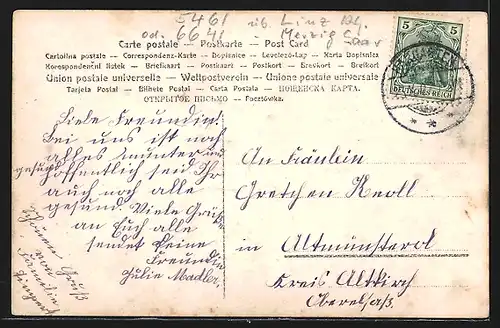 5461 üb. Linz Rh.
od. 6641 Merzig Saar
Carte postale — Postkarte — Post Card
Cartolina postale — Correspondenz-Karte — Dopisnica — Levelező-Lap — Karta Dopisnica
Korespondenční lístek — Briefkaart — Postkaart — Postkort — Brevkort — Brefkort
Union postale universelle — Weltpostverein — Unione postale universale
Tarjeta Postal — Bilhete Postal — Carta Postala — ПОШЕНСКА КАРТА.
ОТКРЫТОЕ ПИСЬМО — Pocztówka.
5 5
DEUTSCHES REICH
Liebe Freundin!
Bei uns ist noch
alles munter und
gesund
öffentlich seid Ihr
auch noch alle
gesund Viele Grüße
an Euch alle
sendet Deine
Freundin
Julie Madler
Schöner Gruß
von
Familie
An Fräulein
Gretchen Knoll
in Altmünsterol
Kreis Altkirch
Oberelsaß.